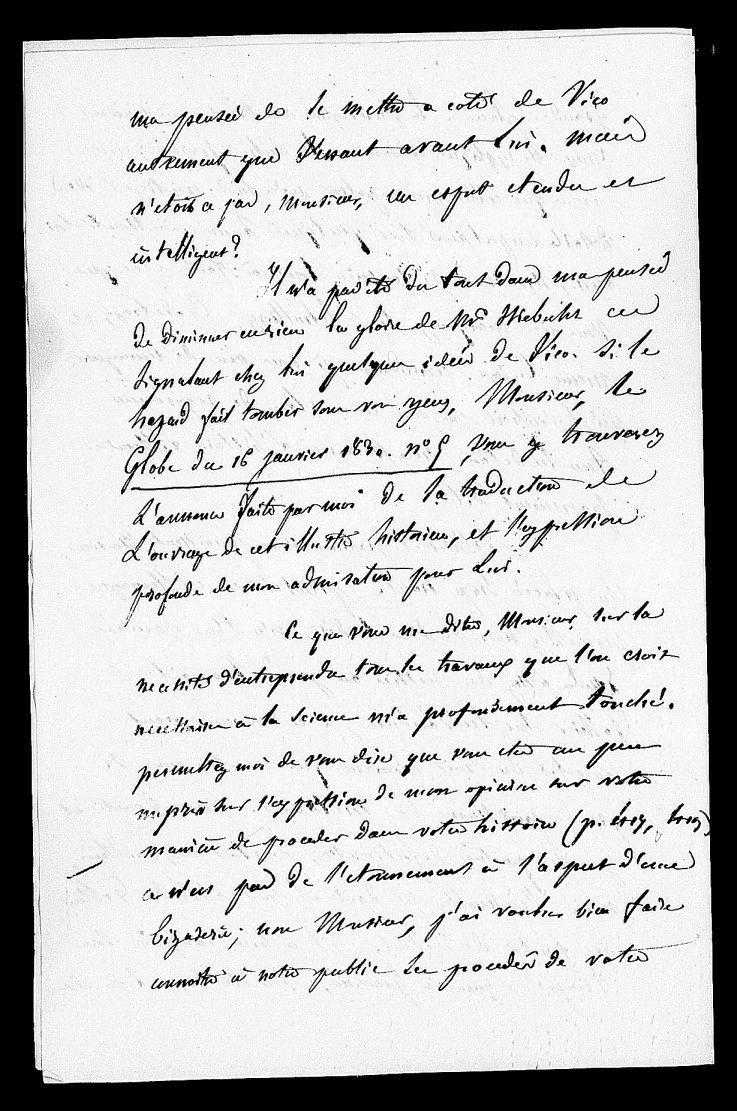 ma pensée de le mettre a coté de Vico
autrement que venant avant lui. Mais
n'etois ce pas, Monsieur, un esprit etendu et
intelligent?
Il n'a pas été du tout dans ma pensée
de diminuer en rien la gloire de Mr Niebuhr en
signalant chez lui quelques idées de Vico. Si le
hazard fait tomber sous vos yeux, Monsieur, le
Globe du 16 janvier 1830. n° 5, vous y trouverez
L'annonce faite par moi de la traduction de
L'ouvrage de cet illustre historien, et l'expression
profonde de mon admiration pour lui.
Ce que vous me dites, Monsieur, sur la
necessité d'entreprendre tous les travaux que l'on croit
necessaires à la science m'a profondement touché.
permettez moi de vous dire que vous etes un peu
mepris sur l'expression de mon opinion sur votre
maniere de proceder dans votre histoire (p.
ce n'est pas de l'etonnement à l'aspect d'une
bizarerie; non Monsieur, j'ai voulu bien faire
connoitre à notre public les procedés de votre